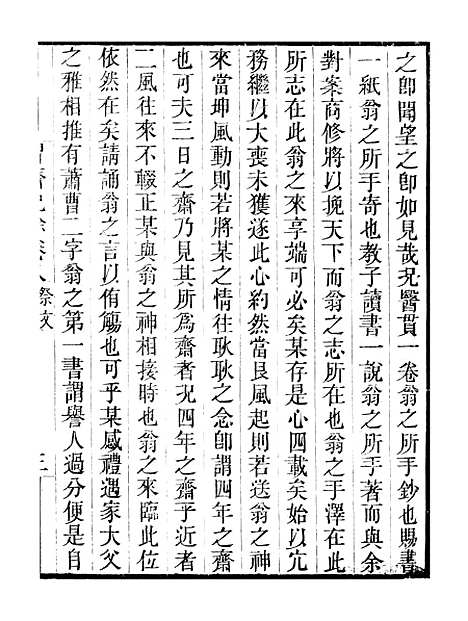 之卽聞望之卽如見哉況醫貫一卷翁之所手鈔也賜書
一紙翁之所手寄也教子讀書一說翁之所手著而與余
對案商修將以挽天下而翁之志所在也翁之手澤在此
所志在此翁之來享端可必矣某存是心四載矣始以冗
務繼以大喪未獲遂此心約然當艮風起則若送翁之神
來當坤風動則若將某之情往耿耿之念卽謂四年之齋
也可夫三日之齋乃見其所爲齋者況四年之齋乎近者
二風往來不輟正某與翁之神相接時也翁之來臨此位
依然在矣請誦翁之言以侑觴也可乎某感禮遇家大父
之雅相推有蕭曹二字翁之第一書謂譽人過分便是自
卷八祭文
三